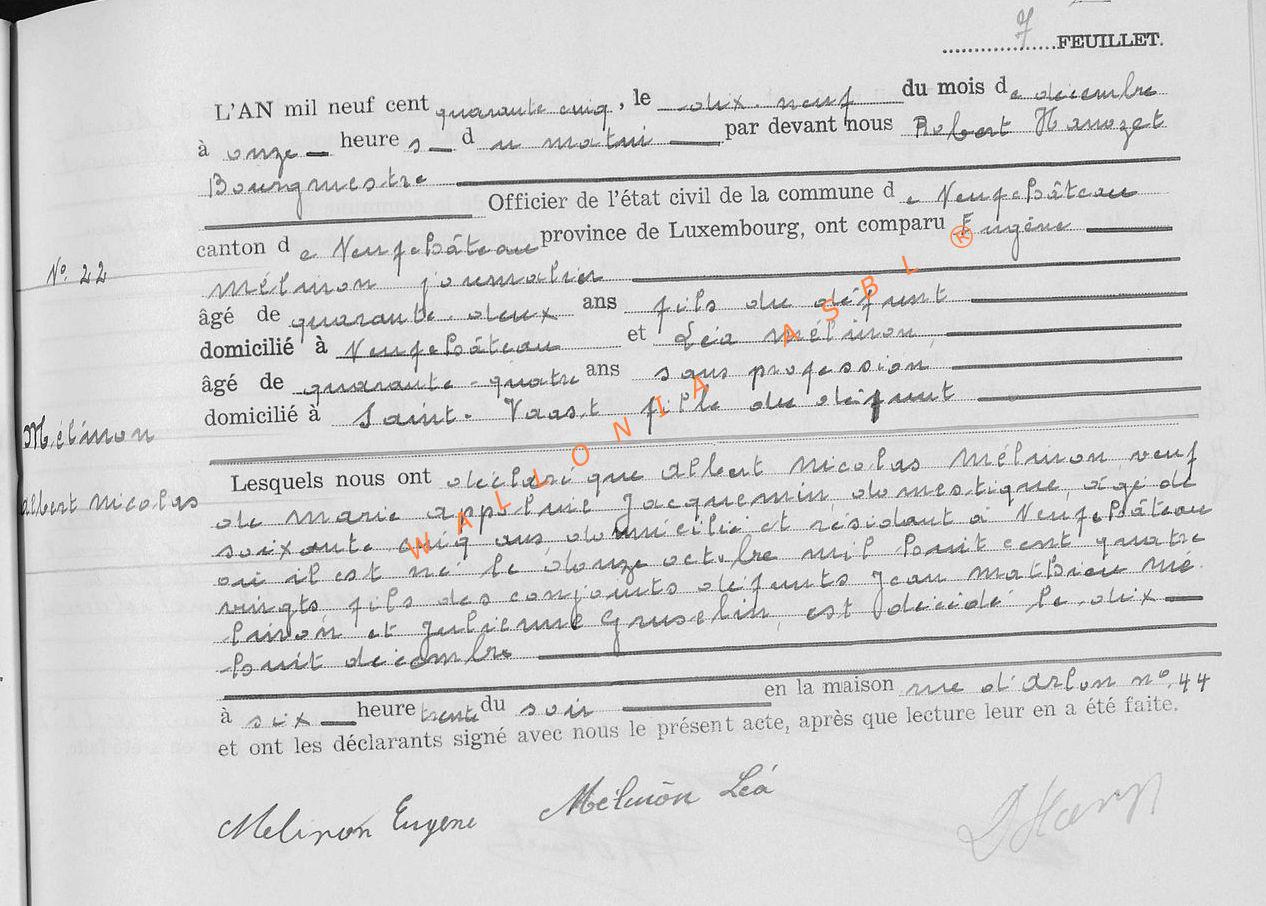 7 FEUILLET.
L'AN mil neuf cent quarante cinq, le dix-neuf du mois de décembre
à onze heure s du matin par devant nous Robert Hanozet
Bourgmestre
Officier de l'état civil de la commune de Neufchâteau
canton de Neufchâteau province de Luxembourg, ont comparu Eugène
N° 22
Mélinon journalier
âgé de quarante-deux ans fils du défunt
domicilié à Neufchâteau et Léa Mélinon,
âgé de quarante-quatre ans sans profession
domicilié à Saint-Vaast fille du défunt
Mélinon
Albert Nicolas
Lesquels nous ont déclaré que Albert Nicolas Mélinon veuf
de Marie Appoline Jacquemin domestique, âgé de
soixante cinq ans domicilié et résidant à Neufchâteau
où il est né le douze octobre mil huit cent quatre
vingts fils des conjoints défunts Jean Mathieu Mé
linon et Julienne Gruselin, est décédé le dix
huit décembre
à six heure trente du soir en la maison rue d'Arlon n° 44
et ont les déclarants signé avec nous le présent acte, après que lecture leur en a été faite.
Melinon Eugene Mélinon Léa
WALLONIA ASBL ®